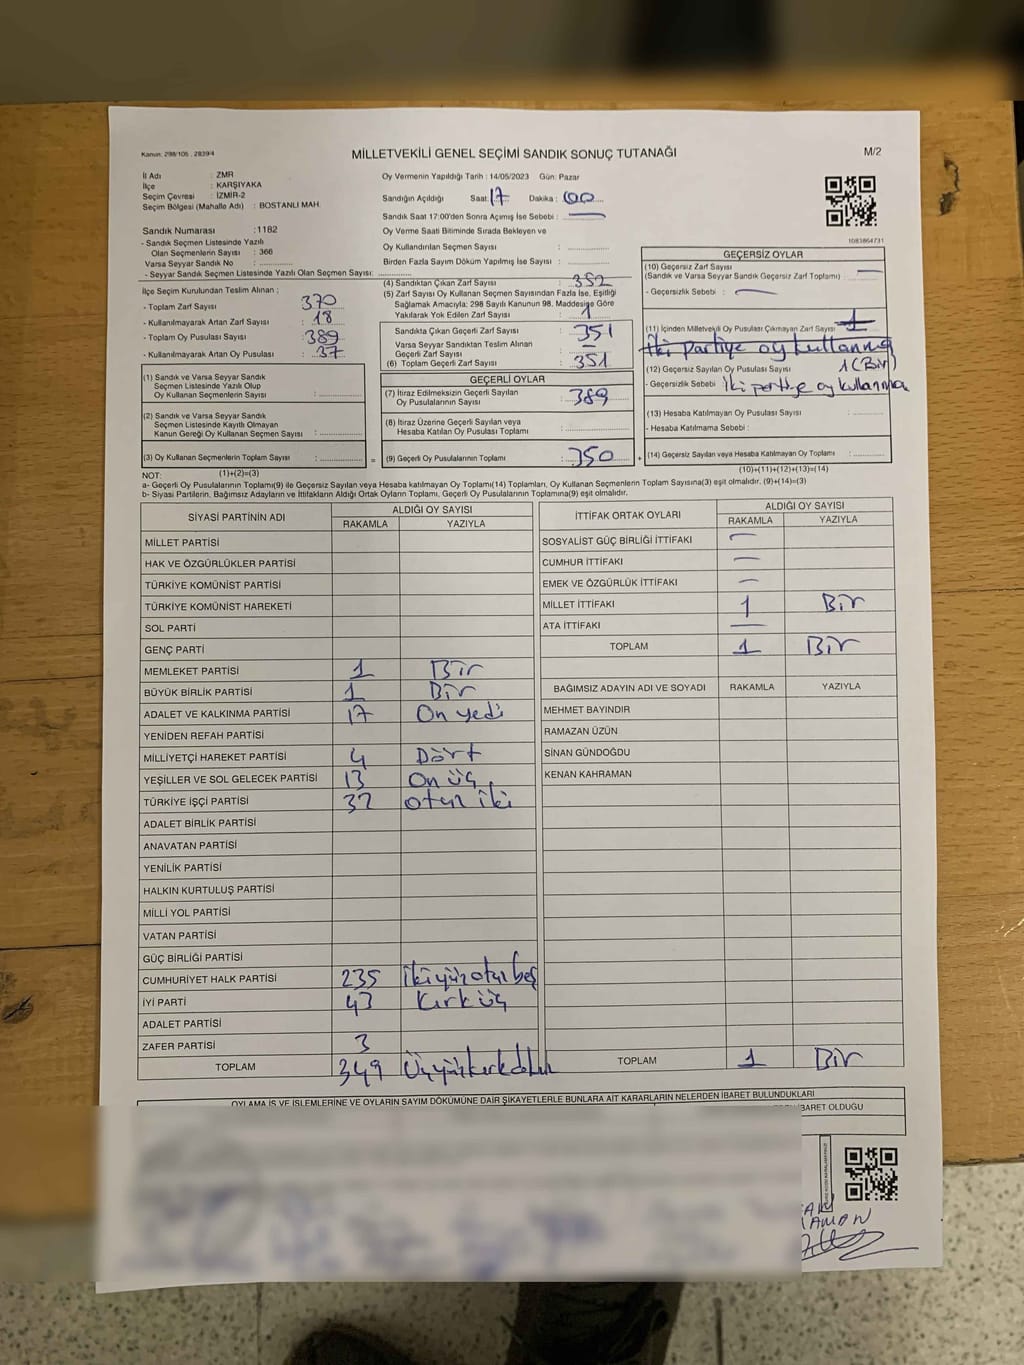 Kanun: 298/105 , 2839/4
MİLLETVEKİLİ GENEL SEÇİMİ SANDIK SONUÇ TUTANAĞI
M/2
İl Adı : ZMR
İlçe : KARŞIYAKA
Seçim Çevresi : İZMİR-2
Seçim Bölgesi (Mahalle Adı) : BOSTANLI MAH.
Oy Vermenin Yapıldığı Tarih : 14/05/2023 Gün: Pazar
Sandığın Açıldığı Saat: 17 Dakika : 00
Sandık Saat 17:00'den Sonra Açımış İse Sebebi : —
Oy Verme Saati Bitiminde Sırada Bekleyen ve
Oy Kullandırılan Seçmen Sayısı :
Birden Fazla Sayım Döküm Yapılmış İse Sayısı :
1083864731
Sandık Numarası :1182
- Sandık Seçmen Listesinde Yazılı
Olan Seçmenlerin Sayısı : 366
Varsa Seyyar Sandık No :
- Seyyar Sandık Seçmen Listesinde Yazılı Olan Seçmen Sayısı:
İlçe Seçim Kurulundan Teslim Alınan ;
- Toplam Zarf Sayısı : 370
- Kullanılmayarak Artan Zarf Sayısı : 18
- Toplam Oy Pusulası Sayısı : 389
- Kullanılmayarak Artan Oy Pusulası : 37
(1) Sandık ve Varsa Seyyar Sandık
Seçmen Listesinde Yazılı Olup
Oy Kullanan Seçmenlerin Sayısı :
(2) Sandık ve Varsa Seyyar Sandık
Seçmen Listesinde Kayıtlı Olmayan
Kanun Gereği Oy Kullanan Seçmen Sayısı :
(3) Oy Kullanan Seçmenlerin Toplam Sayısı :
(1)+(2)=(3)
(4) Sandıktan Çıkan Zarf Sayısı : 352
(5) Zarf Sayısı Oy Kullanan Seçmen Sayısından Fazla İse, Eşitliği
Sağlamak Amacıyla; 298 Sayılı Kanunun 98. Maddesine Göre
Yakılarak Yok Edilen Zarf Sayısı : 1
Sandıkta Çıkan Geçerli Zarf Sayısı : 351
Varsa Seyyar Sandıktan Teslim Alınan
Geçerli Zarf Sayısı : —
(6) Toplam Geçerli Zarf Sayısı : 351
GEÇERLİ OYLAR
(7) İtiraz Edilmeksizin Geçerli Sayılan
Oy Pusulalarının Sayısı : 389
(8) İtiraz Üzerine Geçerli Sayılan veya
Hesaba Katılan Oy Pusulası Toplamı :
= (9) Geçerli Oy Pusulalarının Toplamı : 350 +
GEÇERSİZ OYLAR
(10) Geçersiz Zarf Sayısı
(Sandık ve Varsa Seyyar Sandık Geçersiz Zarf Toplamı) : —
- Geçersizlik Sebebi : —
(11) İçinden Milletvekili Oy Pusulası Çıkmayan Zarf Sayısı : 1
İki partiye oy kullanma
(12) Geçersiz Sayılan Oy Pusulası Sayısı 1 (Bir)
- Geçersizlik Sebebi : İki partiye oy kullanma
(13) Hesaba Katılmayan Oy Pusulası Sayısı :
- Hesaba Katılmama Sebebi :
(14) Geçersiz Sayılan veya Hesaba Katılmayan Oy Toplamı :
(10)+(11)+(12)+(13)=(14)
NOT:
a- Geçerli Oy Pusulalarının Toplamı(9) ile Geçersiz Sayılan veya Hesaba katılmayan Oy Toplamı(14) Toplamları, Oy Kullanan Seçmenlerin Toplam Sayısına(3) eşit olmalıdır. (9)+(14)=(3)
b- Siyasi Partilerin, Bağımsız Adayların ve İttifakların Aldığı Ortak Oyların Toplamı, Geçerli Oy Pusulalarının Toplamına(9) eşit olmalıdır.
SİYASİ PARTİNİN ADI ALDIĞI OY SAYISI
RAKAMLA YAZIYLA
MİLLET PARTİSİ
HAK VE ÖZGÜRLÜKLER PARTİSİ
TÜRKİYE KOMÜNİST PARTİSİ
TÜRKİYE KOMÜNİST HAREKETİ
SOL PARTİ
GENÇ PARTİ
MEMLEKET PARTİSİ 1 Bir
BÜYÜK BİRLİK PARTİSİ 1 Bir
ADALET VE KALKINMA PARTİSİ 17 On yedi
YENİDEN REFAH PARTİSİ
MİLLİYETÇİ HAREKET PARTİSİ 4 Dört
YEŞİLLER VE SOL GELECEK PARTİSİ 13 On üç
TÜRKİYE İŞÇİ PARTİSİ 32 otuz iki
ADALET BİRLİK PARTİSİ
ANAVATAN PARTİSİ
YENİLİK PARTİSİ
HALKIN KURTULUŞ PARTİSİ
MİLLİ YOL PARTİSİ
VATAN PARTİSİ
GÜÇ BİRLİĞİ PARTİSİ
CUMHURİYET HALK PARTİSİ 235 ikiyüzotuzbeş
İYİ PARTİ 43 Kırk üç
ADALET PARTİSİ
ZAFER PARTİSİ 3
TOPLAM 349 Üçyüzkırkdokuz
İTTİFAK ORTAK OYLARI ALDIĞI OY SAYISI
RAKAMLA YAZIYLA
SOSYALİST GÜÇ BİRLİĞİ İTTİFAKI —
CUMHUR İTTİFAKI —
EMEK VE ÖZGÜRLÜK İTTİFAKI —
MİLLET İTTİFAKI 1 Bir
ATA İTTİFAKI —
TOPLAM 1 Bir
BAĞIMSIZ ADAYIN ADI VE SOYADI RAKAMLA YAZIYLA
MEHMET BAYINDIR
RAMAZAN ÜZÜN
SİNAN GÜNDOĞDU
KENAN KAHRAMAN
TOPLAM 1 Bir
OYLAMA İŞ VE İŞLEMLERİNE VE OYLARIN SAYIM DÖKÜMÜNE DAİR ŞİKAYETLERLE BUNLARA AİT KARARLARIN NELERDEN İBARET BULUNDUKLARI
BARET OLDUĞU